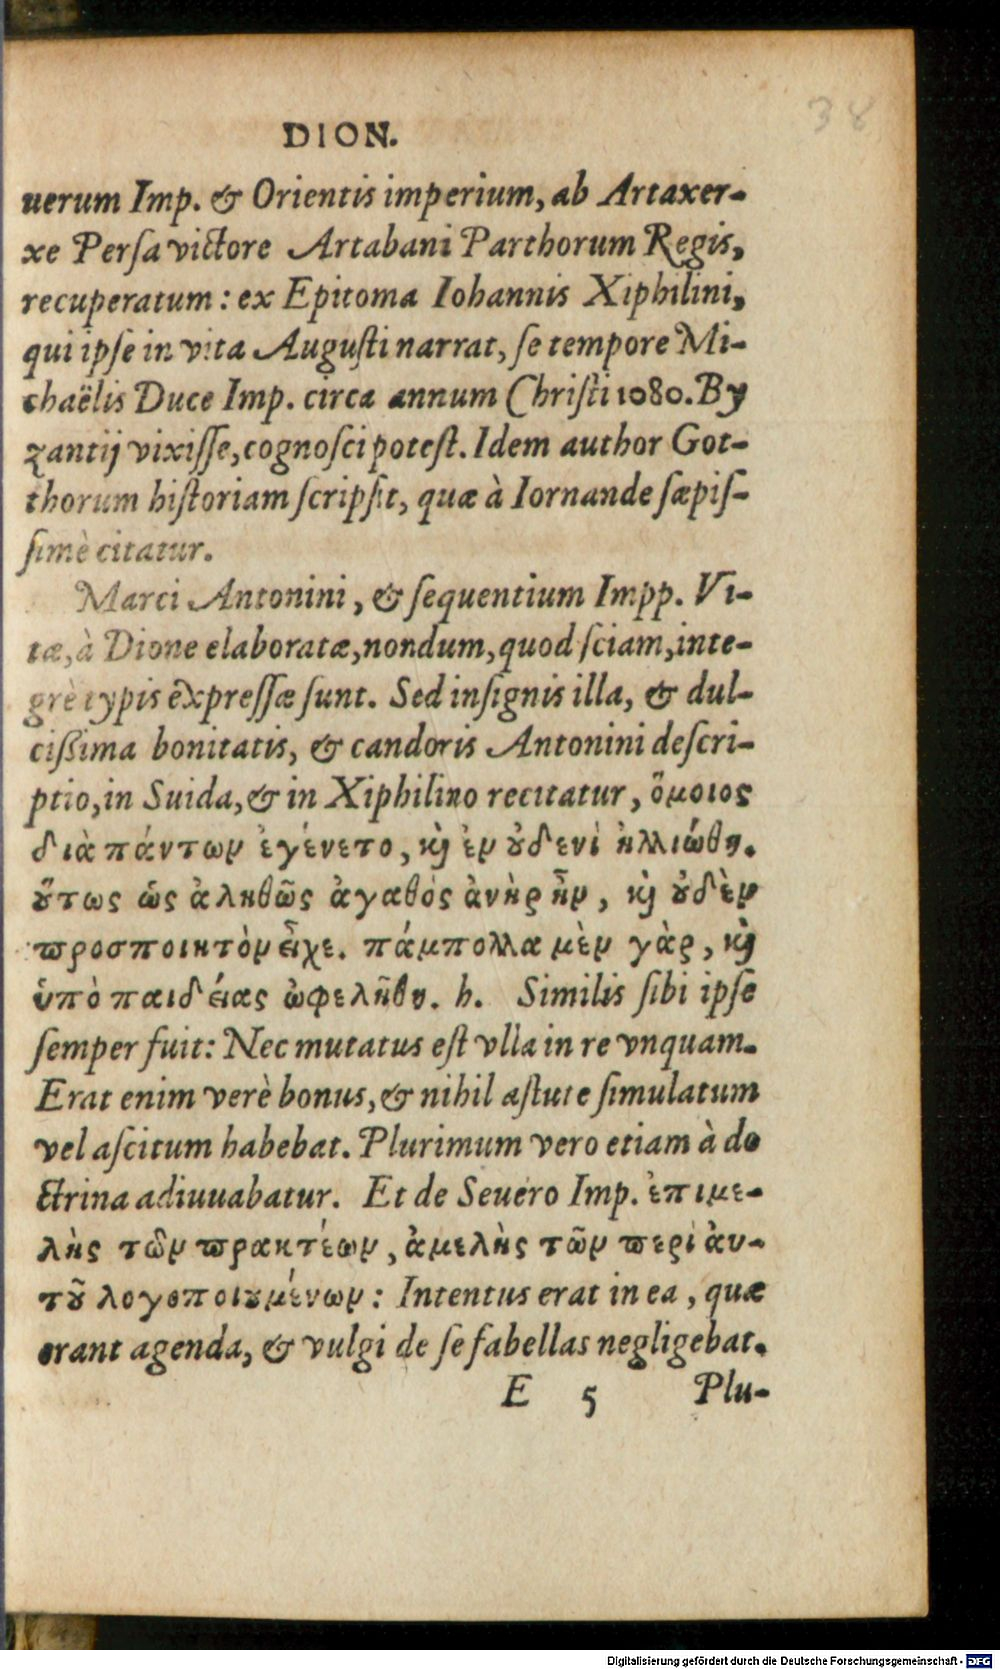 38
DION.
uerum Imp. & Orientis imperium, ab Artaxer-
xe Persa victore Artabani Parthorum Regis,
recuperatum: ex Epitoma Iohannis Xiphilini,
qui ipse in vita Augusti narrat, se tempore Mi-
chaëlis Duce Imp. circa annum Christi 1080. By
zantij vixisse, cognosci potest. Idem author Got-
thorum historiam scripsit, quæ à Iornande sæpis-
simè citatur.
Marci Antonini, & sequentium Impp. Vi-
tæ, à Dione elaboratæ, nondum, quod sciam, inte-
grè typis expressæ sunt. Sed insignis illa, & dul-
cißima bonitatis, & candoris Antonini descri-
ptio, in Suida, & in Xiphilino recitatur, ὅμοιος
διὰ πάντων ἐγένετο, κỳ ἐν ȣ̓δενὶ ἠλλιώθη.
ȣ̔́τως ὡς ἀληθῶς ἀγαθὸς ἀνὴρ ἦν, κỳ ȣ̓δὲν
προσποιητὸν εἶχε. πάμπολλα μὲν γὰρ, κỳ
ὑπὸ παιδείας ὠφελήθη. h. Similis sibi ipse
semper fuit: Nec mutatus est vlla in re vnquam.
Erat enim verè bonus, & nihil astute simulatum
vel ascitum habebat. Plurimum vero etiam à do
ctrina adiuuabatur. Et de Seuero Imp. ἐπιμε-
λὴς τῶν πρακτέων, ἀμελὴς τῶν περὶ ἀυ-
τȣ͂ λογοποιȣμένων: Intentus erat in ea, quæ
erant agenda, & vulgi de se fabellas negligebat.
E 5 Plu-
Digitalisierung gefördert durch die Deutsche Forschungsgemeinschaft - DFG